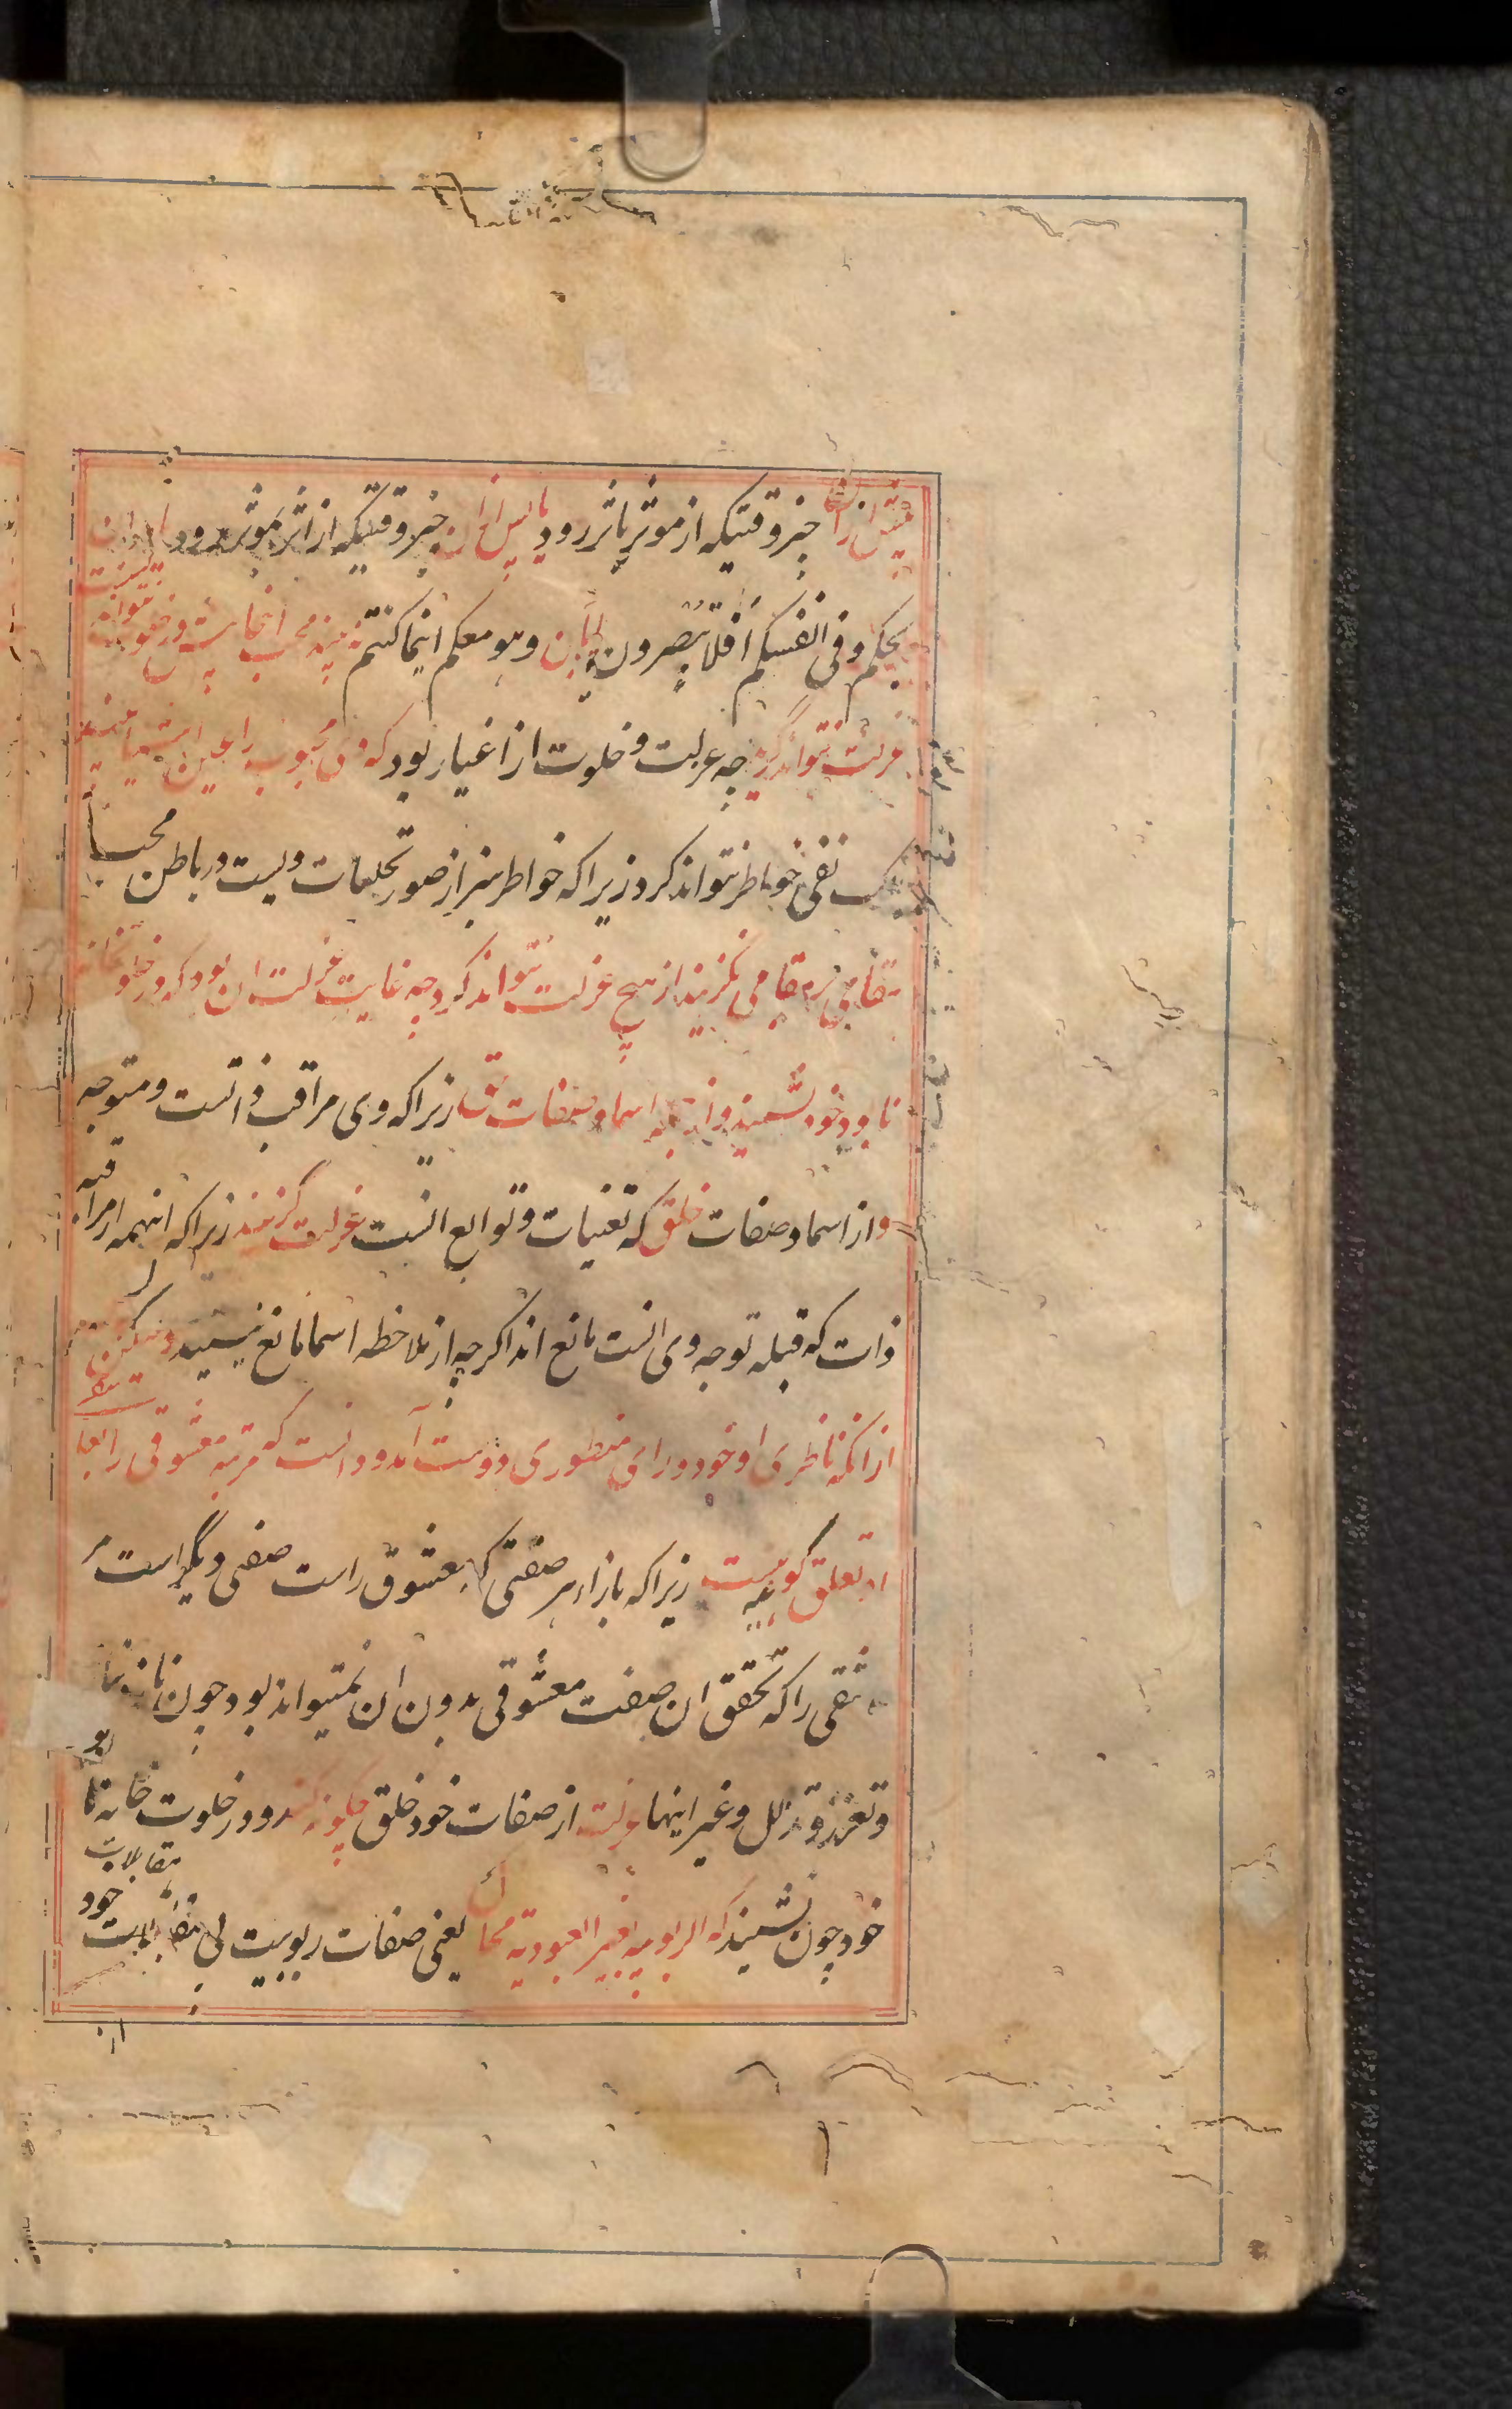 پیش از آن چیز وقتیکه از موثر باثر رود یا پس از آن چیز وقتیکه از اثر بموثر رود یا در آن
بحکم وفی انفسکم افلا تبصرون یا با آن وهو معکم اینما کنتم نه بیند محب اینجا
عزلت نتواند گزید چه عزلت و خلوت از اغیار بود که وی محبوب را عین اشیا
نفی خواطر نتواند کرد زیرا که خواطر نیز از صور تجلیات ویست در باطن محب
مقامی نگزیند از هیچ عزلت نتواند کرد چه غایت عزلت ان بود که در خلوتخانه
نابود خود نشیند و از همه اسما و صفات حق زیرا که وی مراقب ذاتست و متوجه
و از اسما و صفات خلق که تعینات و توابع انست عزلت گزیند زیرا که اینهمه از مراقبه
ذات که قبله توجه وی انست مانع اند اگرچه از ملاحظه اسما مانع نیستند ولیکن
از انکه ناظری او خود ورای منظوری دوست آمد و دانست که مرتبه معشوقی را بعا
تعلق گونه‌ایست زیرا که بازاء هر صفتی که معشوق راست صفتی دیگر است مر
عاشقی را که تحقق ان صفت معشوقی بدون ان نمیتواند بود چون ناز و نیاز
و تعزز و تذلل و غیر اینها عزلت از صفات خود خلق چگونه کند و در خلوت خانه نابود
خود چون نشیند که الربوبیه بغیر العبودیة محال یعنی صفات ربوبیت بی مقابلات خود
مقابلات
از